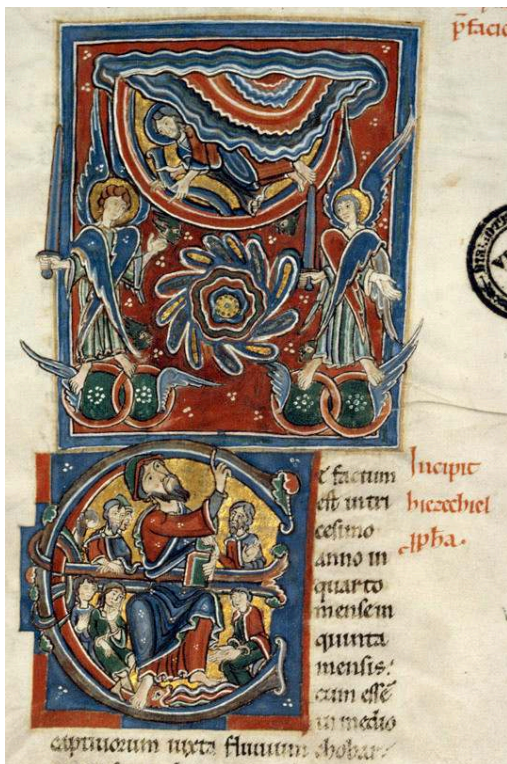 p̄facio
Incipit
hiezechiel
ꝓph̄a.
Et factum
est in tri
cesimo
anno in
quarto
mensem
quinta
mensis:
cum essē
in medio
captivorum iuxta fluvium chobar